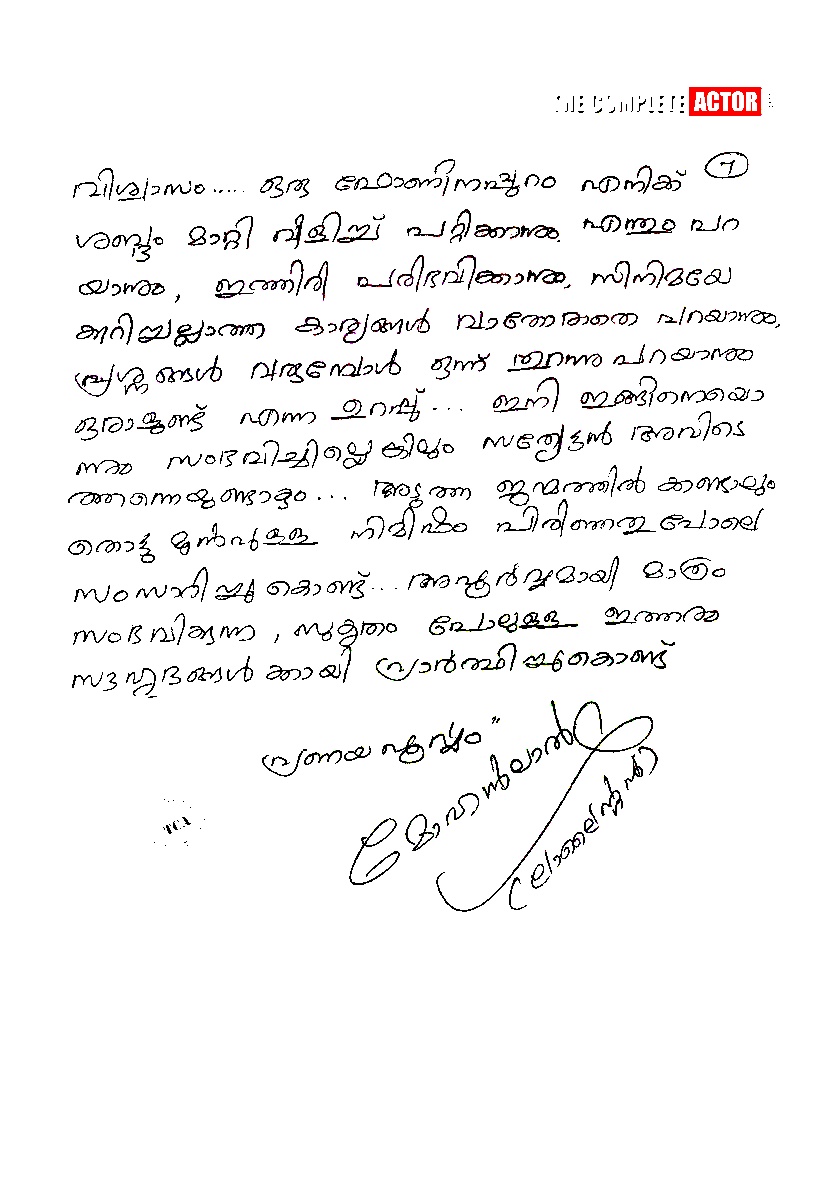 THE COMPLETE ACTOR
7
വിശ്വാസം..... ഒരു ഫോണിനപ്പുറം എനിക്ക്
ശബ്ദം മാറ്റി വിളിച്ച് പറ്റിക്കാനും, എന്തും പറ
യാനും, ഇത്തിരി പരിഭവിക്കാനും, സിനിമയേ
കുറിച്ചല്ലാത്ത കാര്യങ്ങൾ വാതോരാതെ പറയാനും,
പ്രശ്നങ്ങൾ വരുമ്പോൾ ഒന്ന് തുറന്നു പറയാനും
ഒരാളുണ്ട് എന്ന ഉറപ്പ്... ഇനി ഇങ്ങിനെയൊ
ന്നും സംഭവിച്ചില്ലെങ്കിലും സത്യേട്ടൻ അവിടെ
ത്തന്നെയുണ്ടാകും... അടുത്ത ജന്മത്തിൽ കണ്ടാലും
തൊട്ടു മുൻപുള്ള നിമിഷം പിരിഞ്ഞതുപോലെ
സംസാരിച്ചുകൊണ്ട്... അപൂർവ്വമായി മാത്രം
സംഭവിക്കുന്ന, സുകൃതം പോലുള്ള ഇത്തരം
സൗഹൃദങ്ങൾക്കായി പ്രാർത്ഥിച്ചുകൊണ്ട്
പ്രണയപൂർവ്വം"
മോഹൻലാൽ
TCA